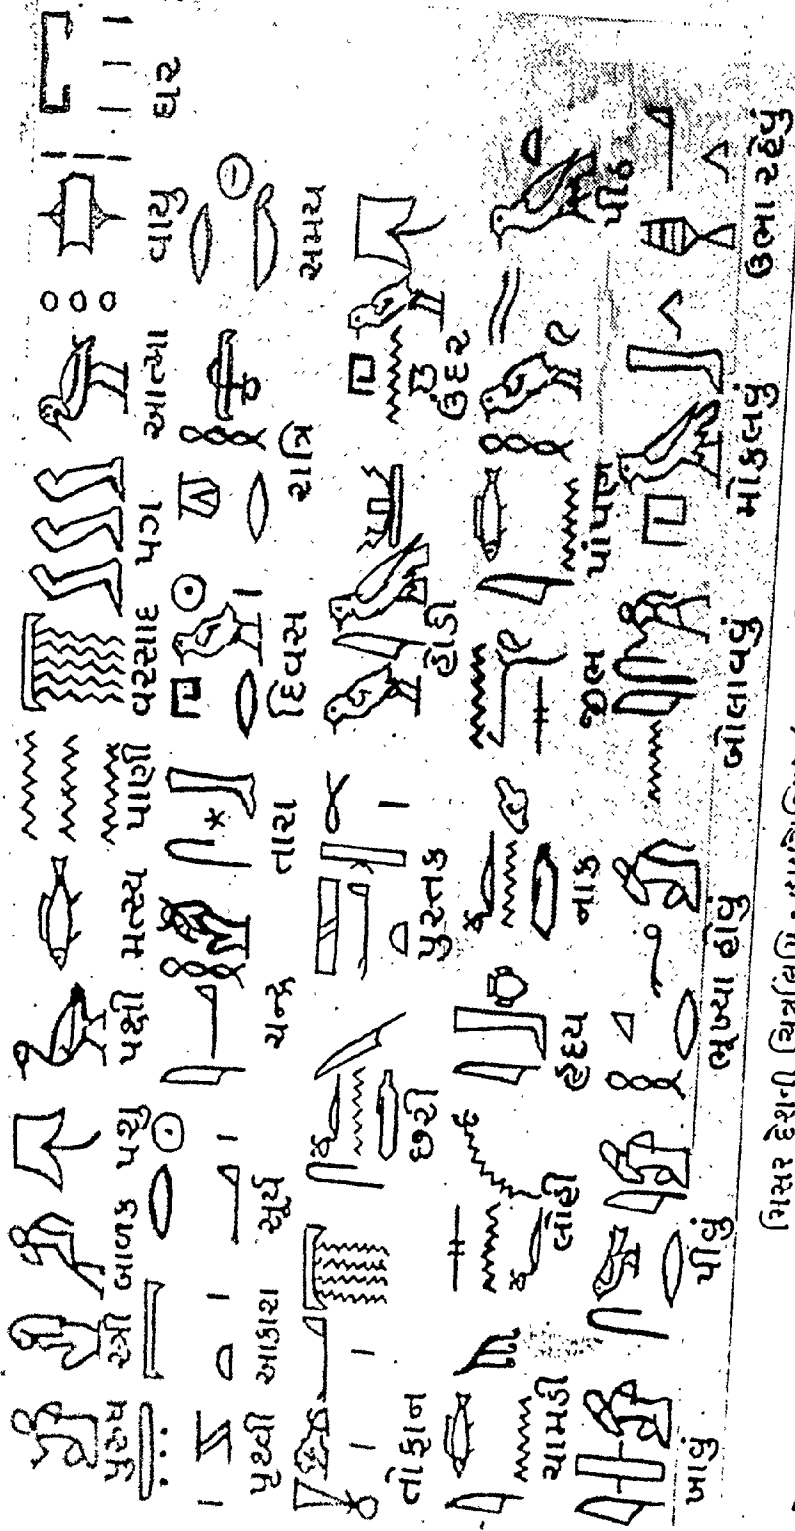 પુરુષ સ્ત્રી બાળક પશુ પક્ષી મત્સ્ય પાણી વરસાદ પગ આત્મા વાયુ ઘર
પૃથ્વી આકાશ સૂર્ય ચન્દ્ર તારા દિવસ રાત્રિ સમય
તોફાન છરી પુસ્તક હોડી ઉંદર
ચામડી લોહી હૃદય નાક જીભ પાંપણ પીઠ
ખાવું પીવું ભૂખ્યા હોવું બોલાવવું મોકલવું ઉભા રહેવું
મિસર દેશની ચિત્રલિપિ